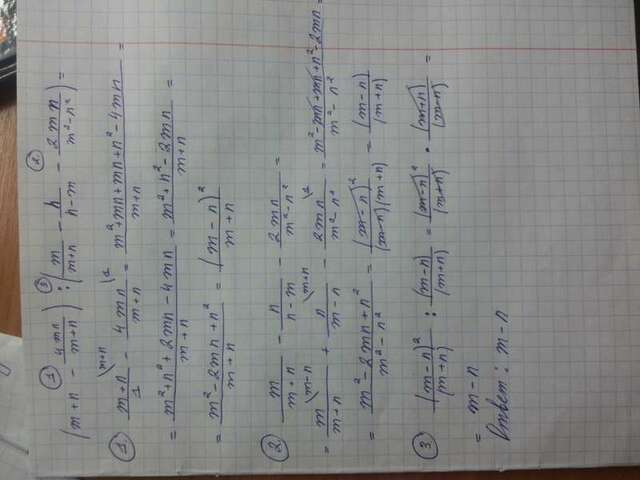 ① ③ ②
(m+n - 4mn/(m+n)) : (m/(m+n) - n/(n-m) - 2mn/(m²-n²)) =
① (m+n)/1 \m+n - 4mn/(m+n) \1 = (m²+mn+mn+n²-4mn)/(m+n) =
= (m²+n²+2mn-4mn)/(m+n) = (m²+n²-2mn)/(m+n) =
= (m²-2mn+n²)/(m+n) = (m-n)²/(m+n)
② m/(m+n) - n/(n-m) - 2mn/(m²-n²) =
= m/(m+n) \m-n + n/(m-n) \m+n - 2mn/(m²-n²) \1 = (m²-mn+mn+n²-2mn)/(m²-n²) =
= (m²-2mn+n²)/(m²-n²) = (m-n)²/((m-n)(m+n)) = (m-n)/(m+n)
③ (m-n)²/(m+n) : (m-n)/(m+n) = (m-n)²/(m+n) · (m+n)/(m-n) =
= m-n
Ответ: m-n